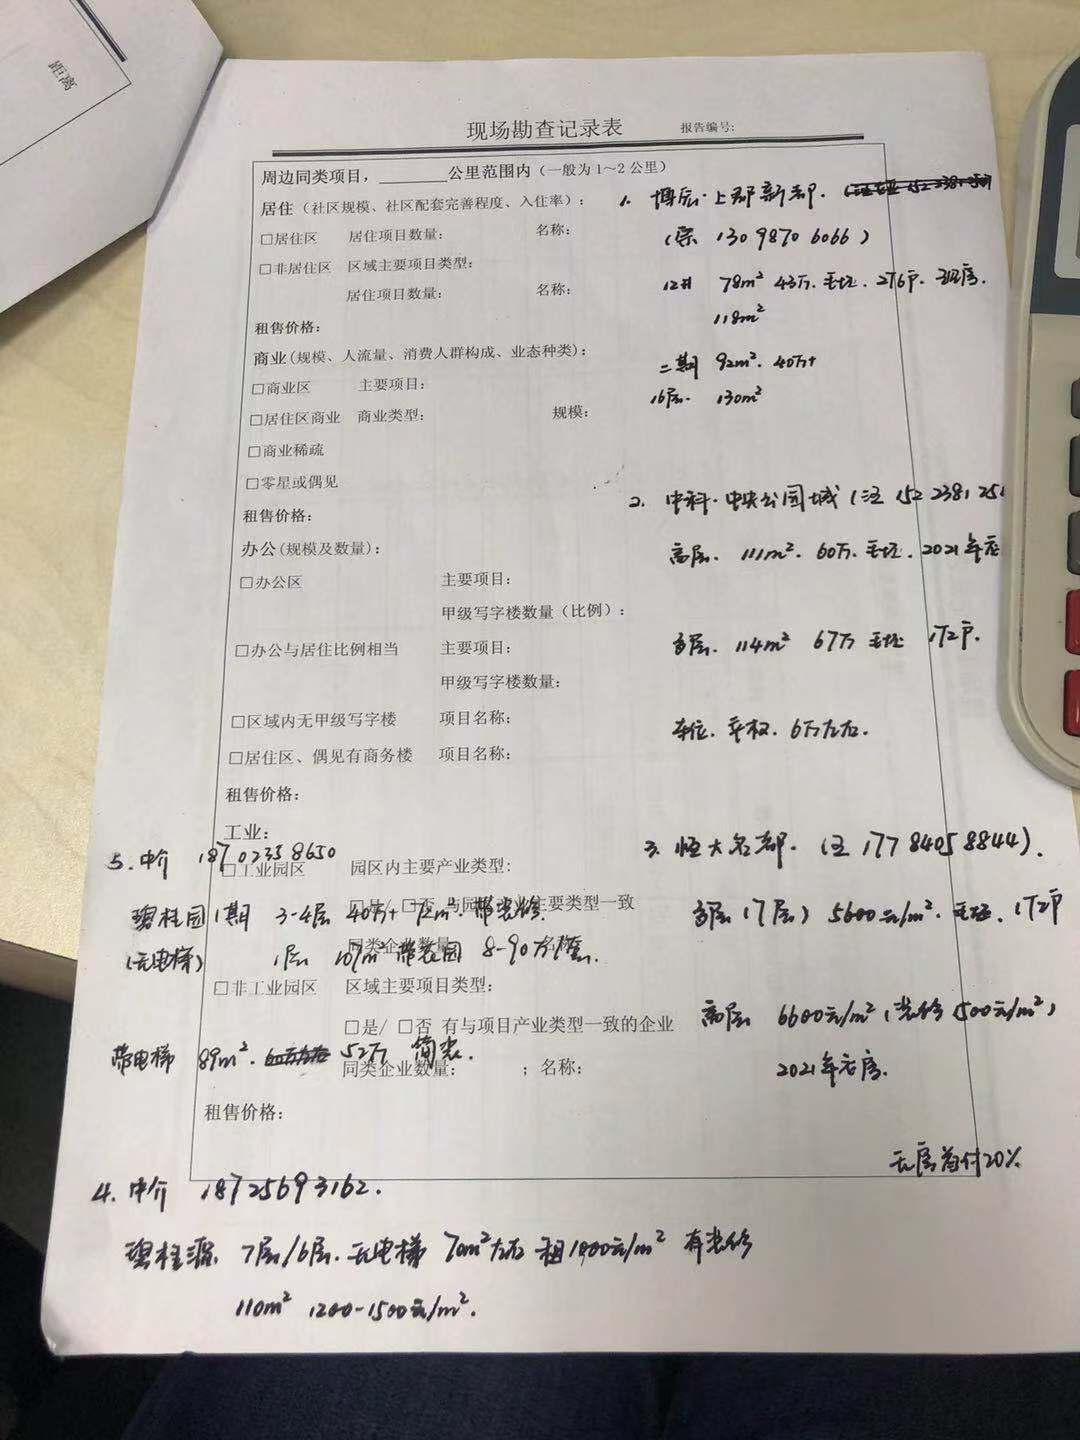 距离
现场勘查记录表 报告编号:
周边同类项目，______公里范围内（一般为1～2公里）
居住（社区规模、社区配套完善程度、入住率）：
1. 博辰·上郡新都.
□居住区 居住项目数量： 名称：
130 9870 6066)
□非居住区 区域主要项目类型：
12# 78m² 43万. 毛坯. 2T6户. 现房.
居住项目数量： 名称：
118m²
租售价格：
商业(规模、人流量、消费人群构成、业态种类)：
二期 92m². 40万+
□商业区 主要项目：
16层. 130m²
□居住区商业 商业类型： 规模：
□商业稀疏
□零星或偶见
2. 中科·中央公园城 (汪 152 2381 251
租售价格：
办公(规模及数量)：
高层. 111m². 60万. 毛坯. 2021年底
□办公区 主要项目：
甲级写字楼数量（比例）：
□办公与居住比例相当 主要项目：
多层. 114m² 67万 毛坯 1T2户.
甲级写字楼数量：
□区域内无甲级写字楼 项目名称：
车位. 产权. 6万左右.
□居住区、偶见有商务楼 项目名称：
租售价格：
工业：
3. 恒大名都. (王 177 8405 8844).
5. 中介 187 0235 8650
□工业园区 园区内主要产业类型：
□是/ □否 与园区主要类型一致
碧桂园1期 3-4层 40万+ 72m². 带装修.
多层(7层) 5600元/m². 毛坯. 1T2户
同类企业数量： 名称：
(无电梯) 1层 107m² 带花园 8-90万/套.
□非工业园区 区域主要项目类型：
高层 6600元/m² (装修1500元/m²)
□是/ □否 有与项目产业类型一致的企业
带电梯 89m². 52万 简装.
同类企业数量： ；名称：
2021年底房.
租售价格：
无房首付20%
4. 中介 18725693162.
碧桂源 7层/6层. 无电梯 70m²左右 租1000元/m² 有装修
110m² 1200-1500元/m².